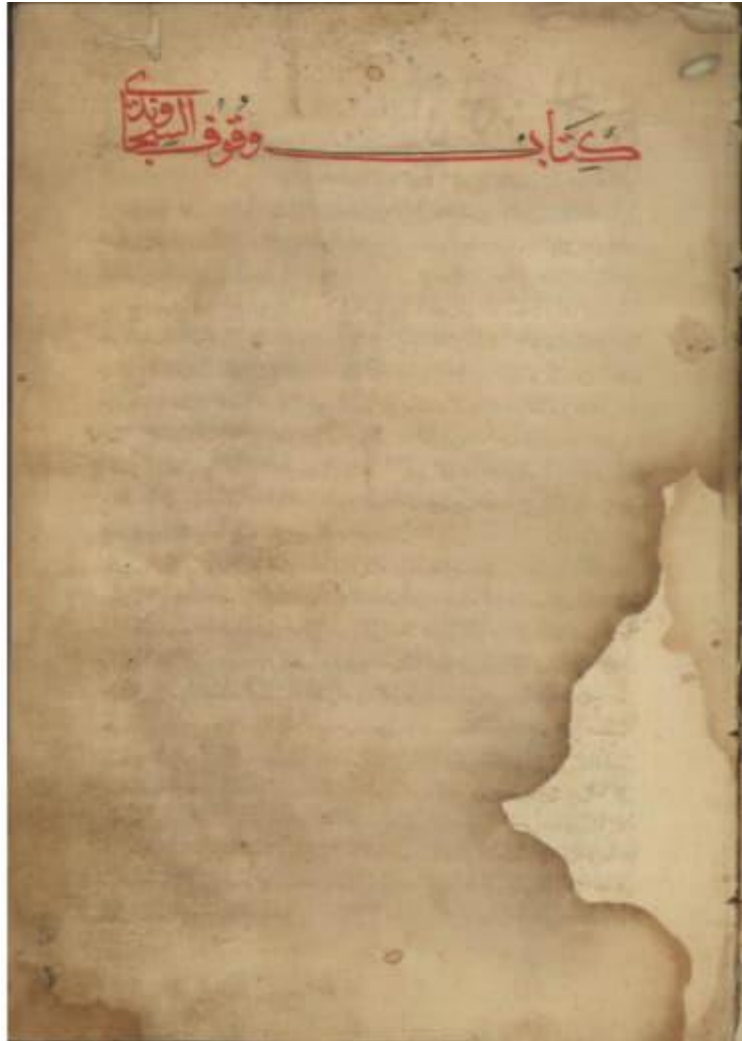 كِتَابُ وقُوفُ السِّجَاوندى